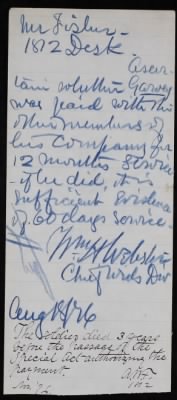 Mr Fisher
1812 Desk.
Ascer-
tain whether Garvey
was paid with the
other members of
his Company for
12 months service
- if he did, it is
sufficient evidence
of 60 days service.
Wm H Webster
Chief Wids Div
Aug 18/76
The soldier died 3 years
before the passage of the
Special Act authorizing the
payment.
Nov. /76